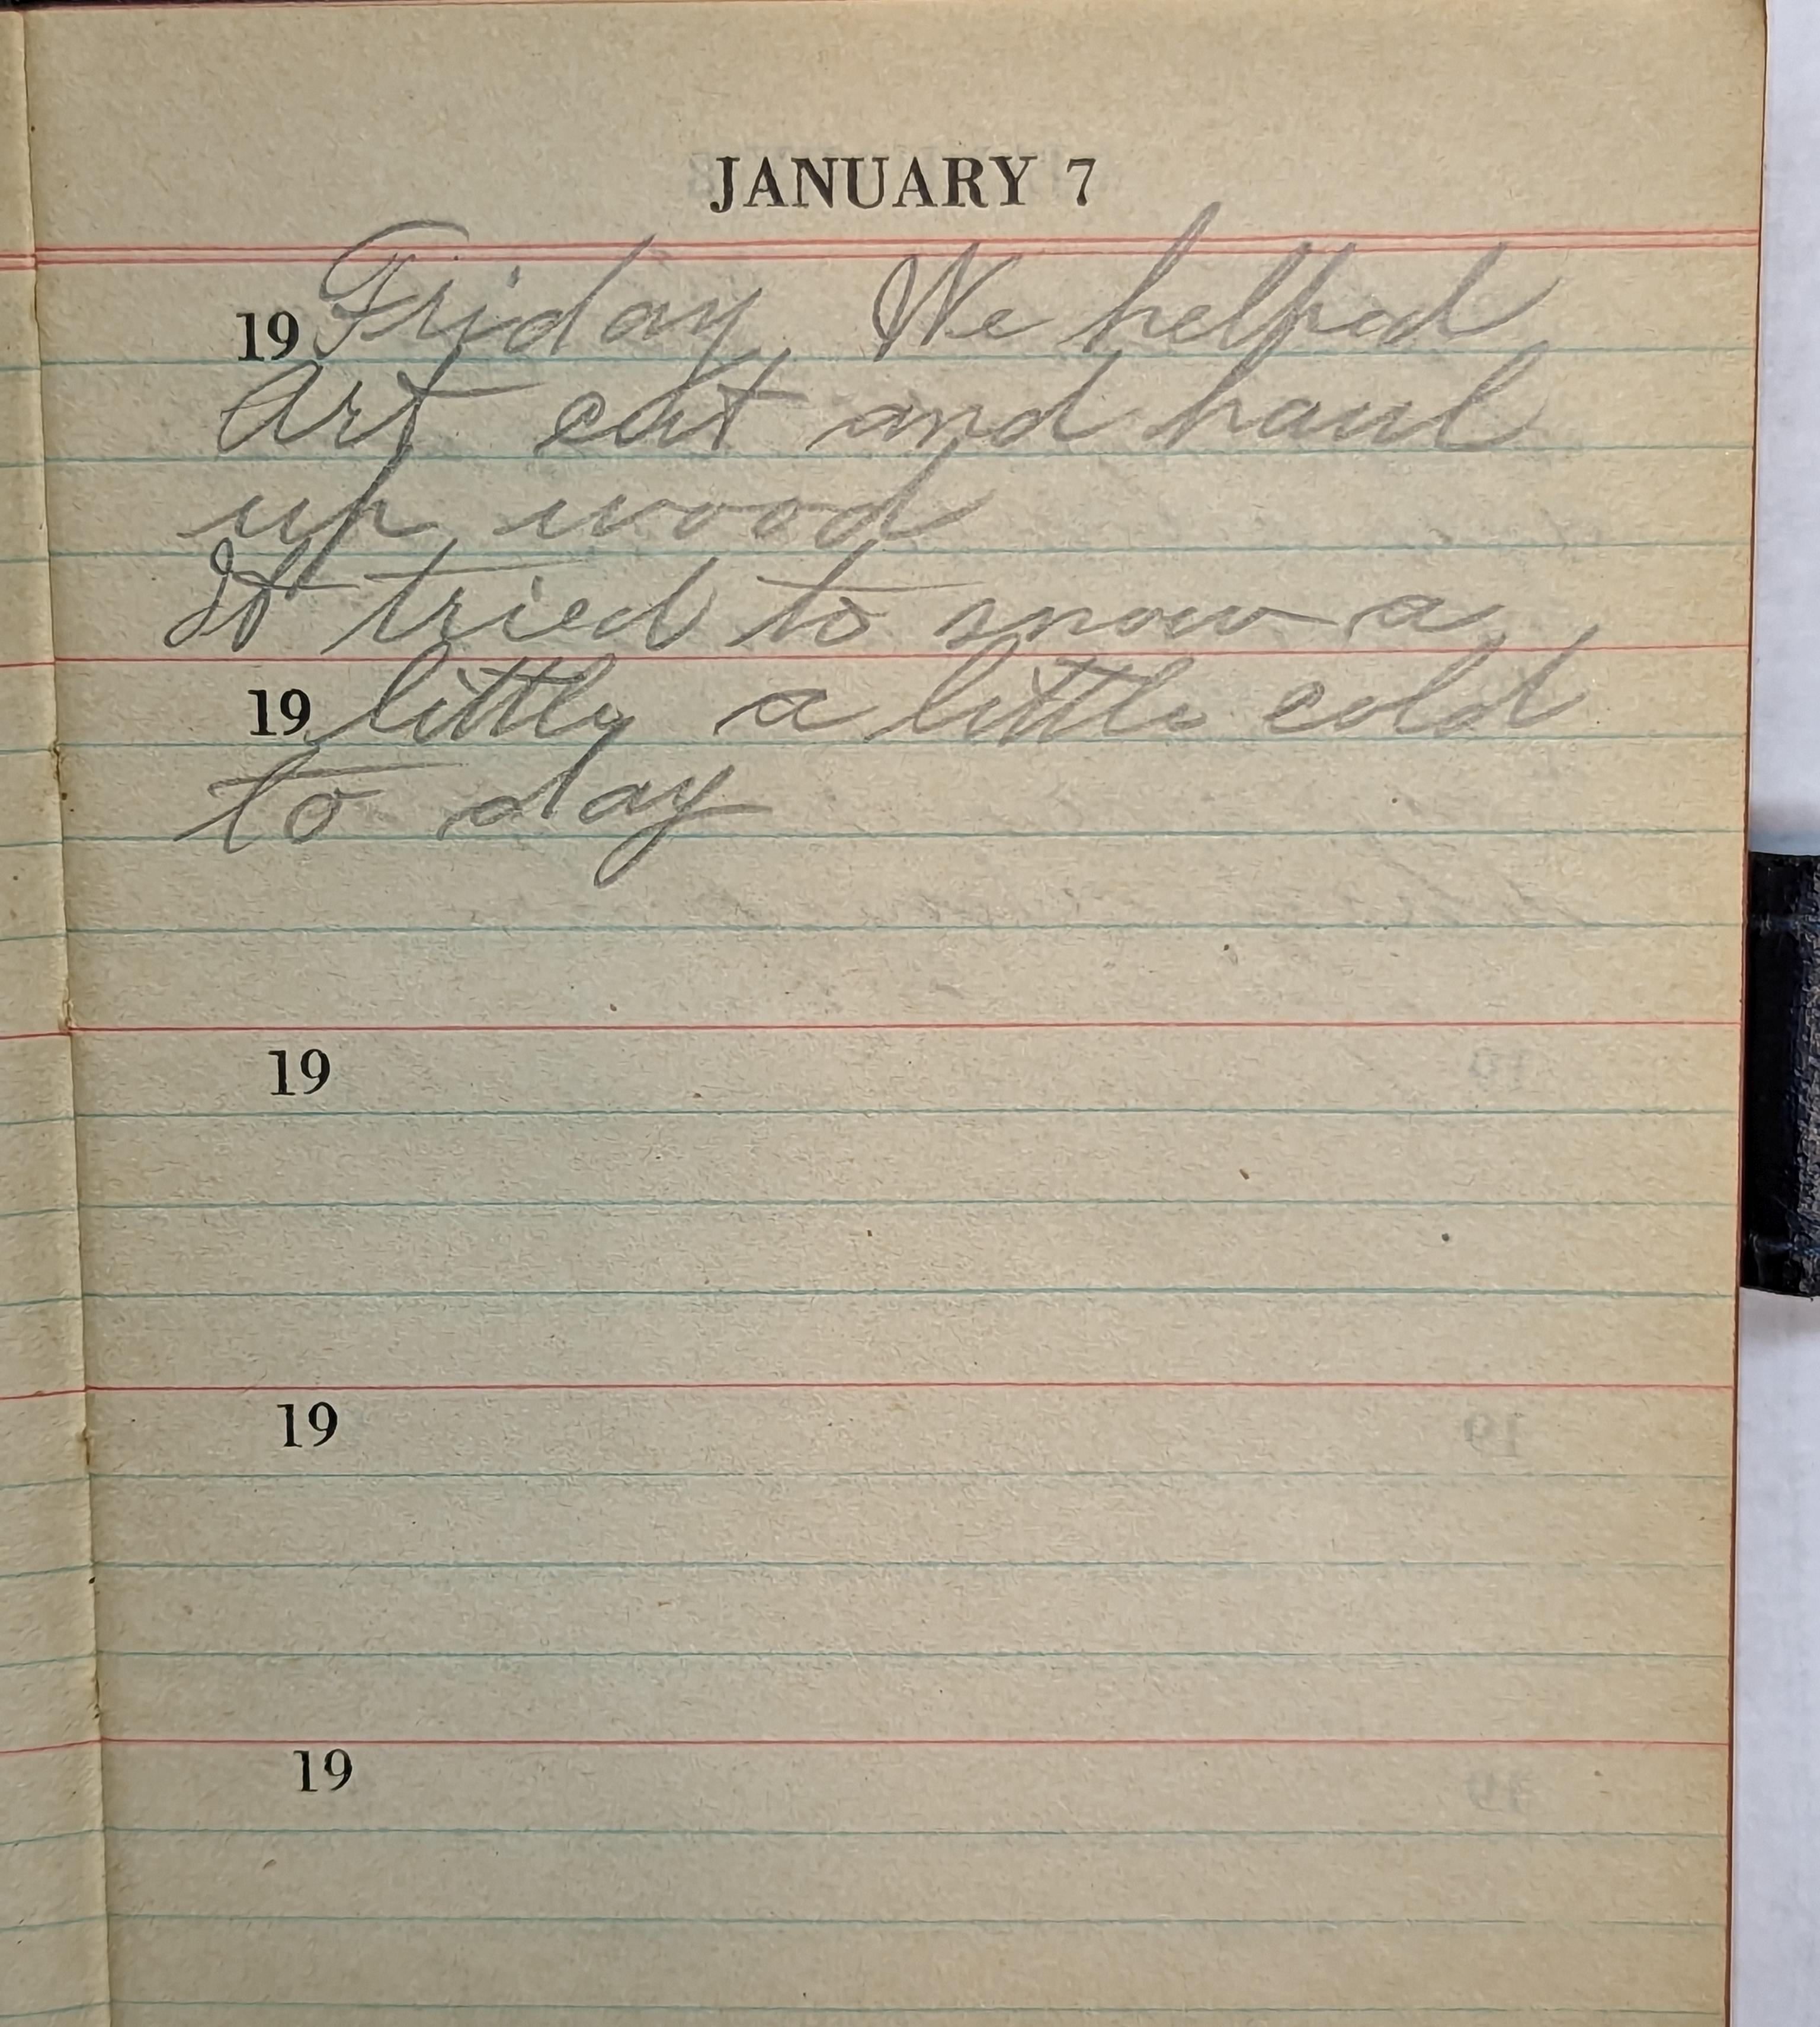 JANUARY 7
19 Friday We helped
Art cut and haul
up wood
It tried to snow a
19 little a little cold
to day
19
19
19